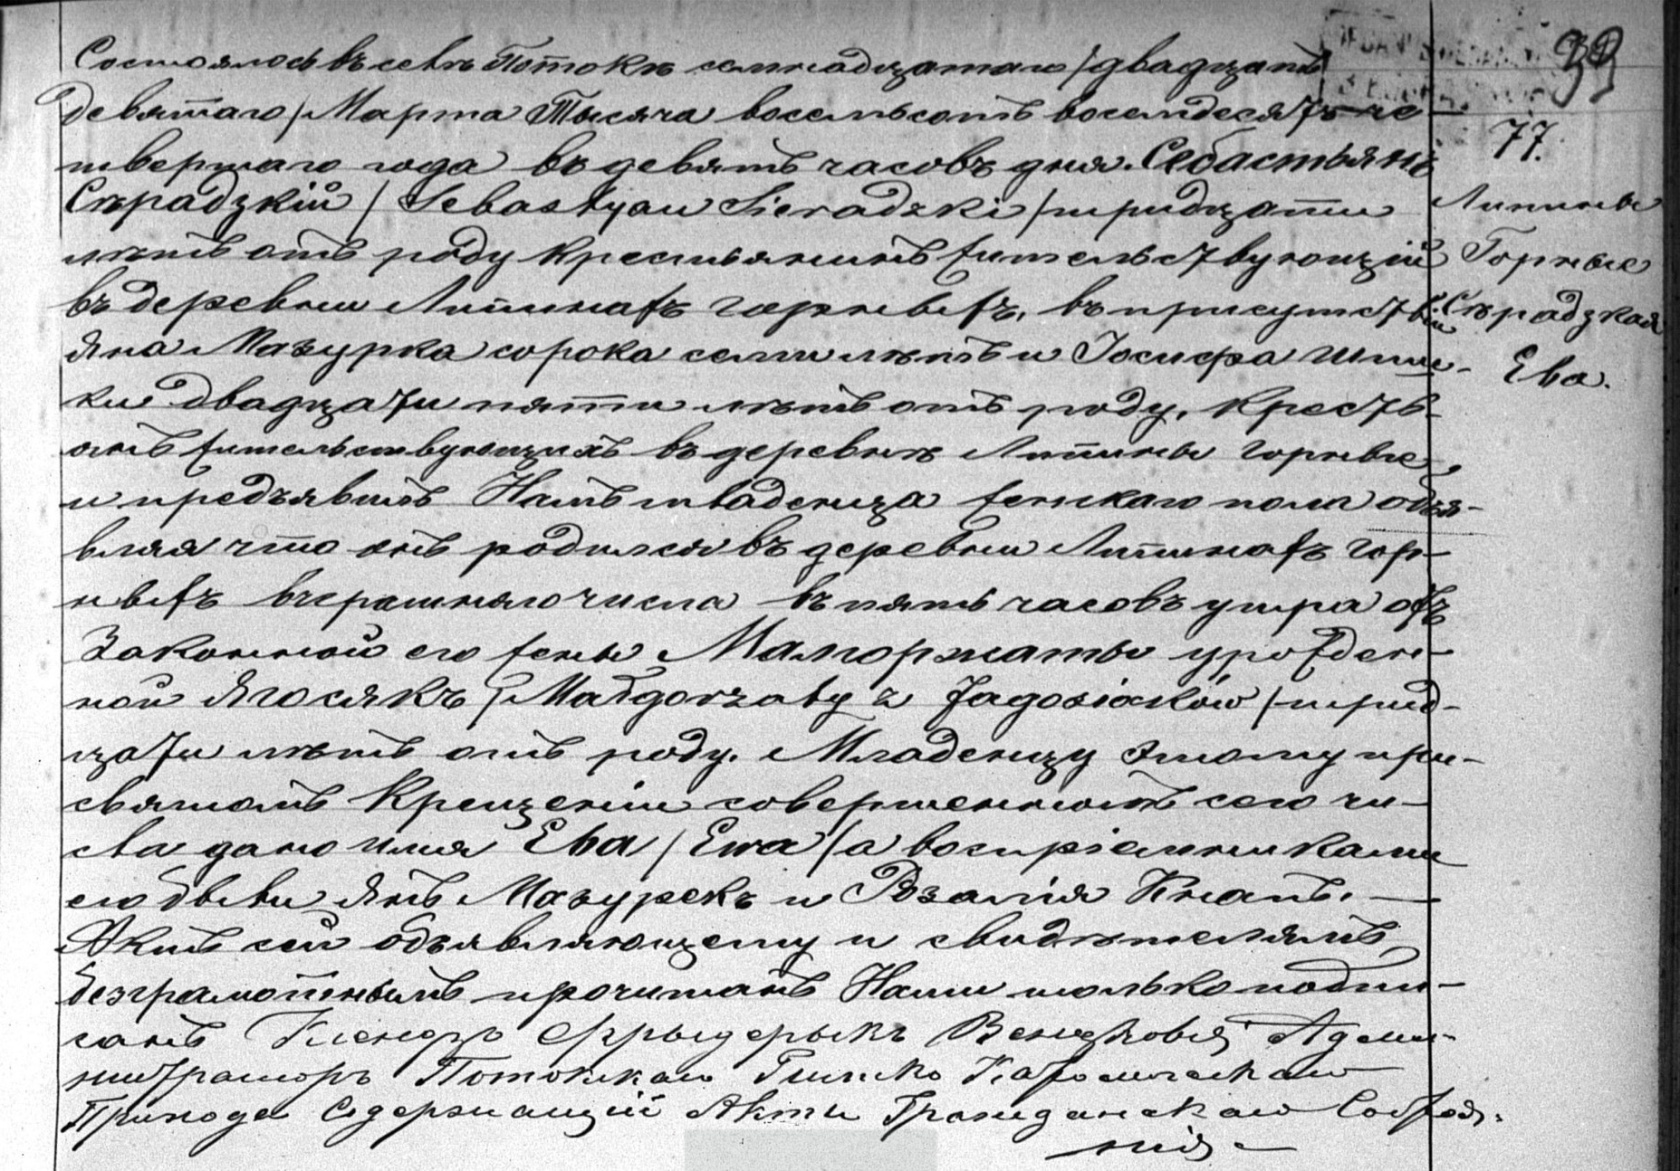 Состоялось въ селѣ Потокъ семнадцатаго /двадцать
девятаго/ Марта Тысяча восемьсотъ восемдесятъ че-
твертаго года въ девять часовъ дня. Себастьянъ
Сѣрадзкій / Sebastyan Sieradzki / тридцати
лѣтъ отъ роду крестьянинъ жительствующій
въ деревни Липинахъ горныхъ, въ присутствіи
Яна Мазурка сорока семи лѣтъ и Іосифа
двадцати пяти лѣтъ отъ роду, кресть-
янъ жительствующихъ въ деревнѣ Липины горные,
и предъявилъ Намъ младенца женскаго пола объя-
вляя что онъ родился въ деревни Липинахъ гор-
ныхъ вчерашняго числа въ пять часовъ утра отъ
Законной его жены Малгоржаты урожден-
ной Ягосякъ / Małgorzaty z Jagosiaków / трид-
цати лѣтъ отъ роду. Младенцу этому при
святомъ Крещеніи совершенномъ сего чи-
сла дано имя Ева / Ewa / а воспріемниками
его были Янъ Мазурекъ и Розалія Кнапъ. —
Актъ сей объявляющему и свидѣтелямъ
безграмотнымъ прочитанъ Нами только подпи-
санъ Ксендзъ Фрыдерыкъ Адми-
нистраторъ Потокскаго Римско Католическаго
Прихода Содержащій Акты Гражданскаго Состоя-
нія —
39
77.
Липины
Горные
Сѣрадзкая
Ева.